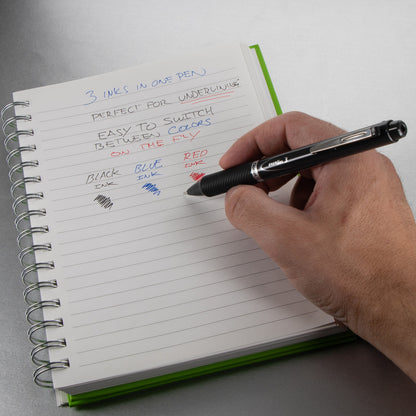 3 INKS IN ONE PEN
PERFECT FOR UNDERLINING
EASY TO SWITCH
BETWEEN COLORS
ON THE FLY
BLACK INK
BLUE INK
RED INK